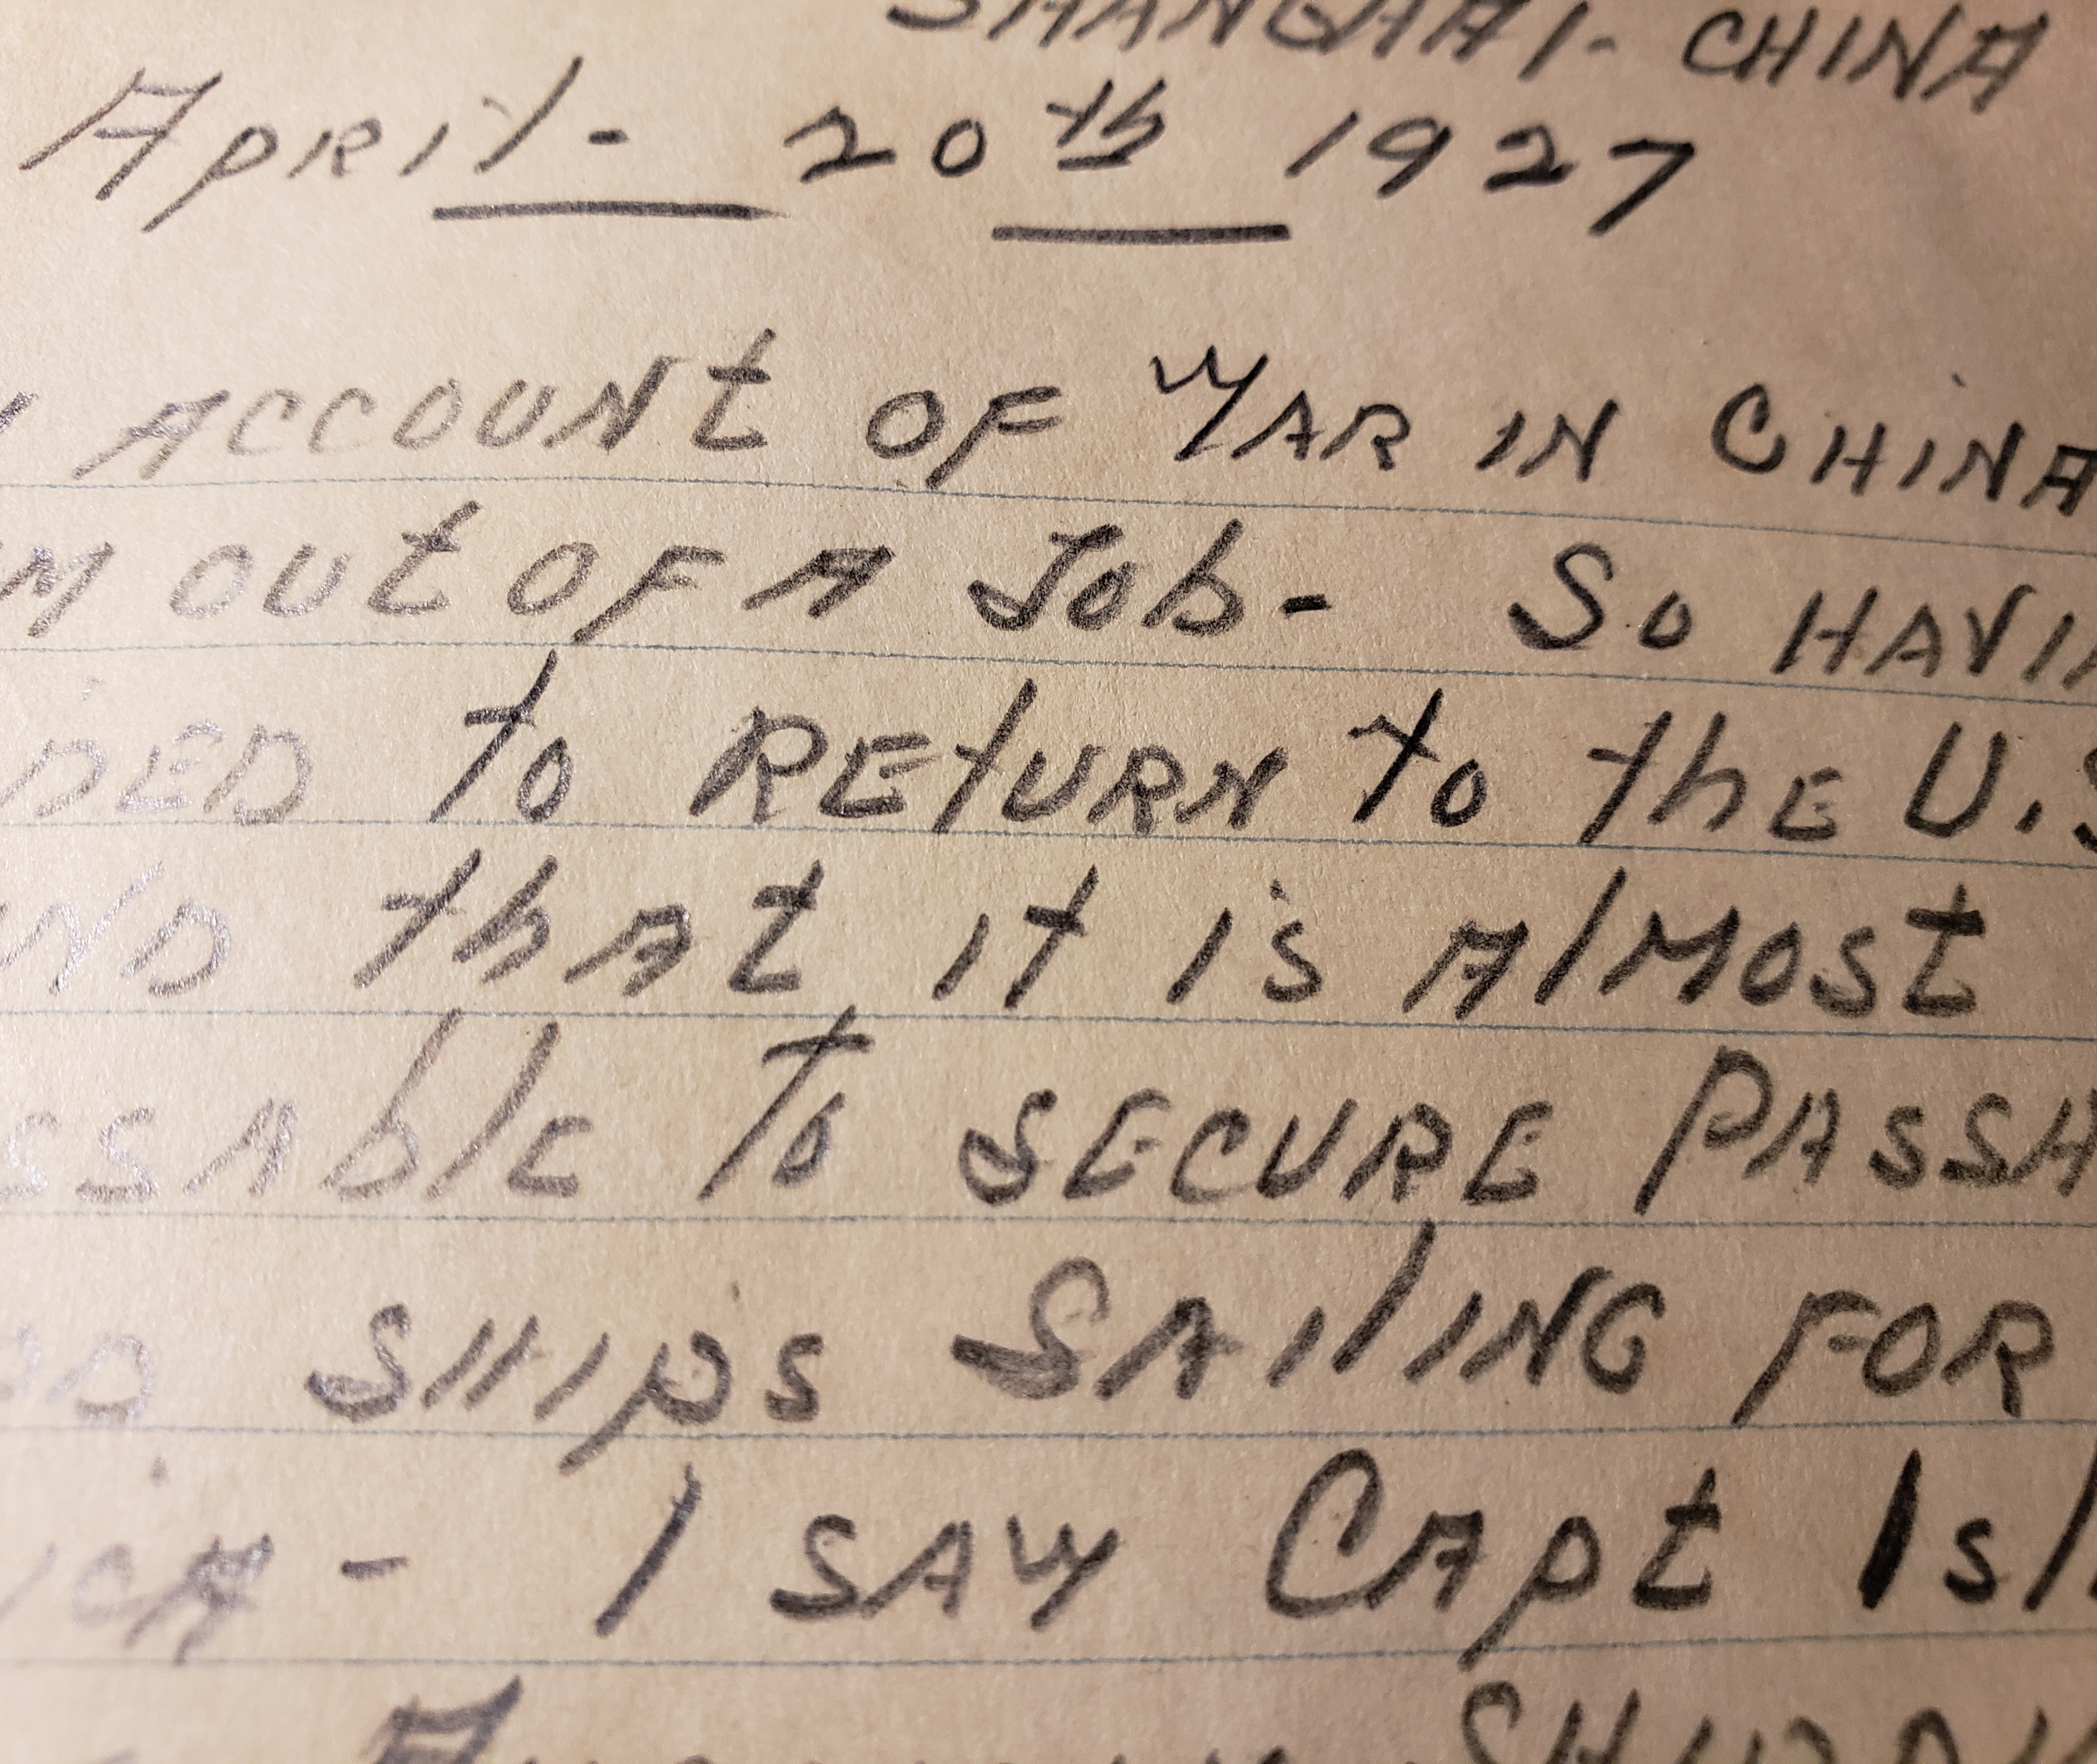 SHANGHAI - CHINA
April - 20th 1927
ACCOUNT OF WAR IN CHINA
OUT OF A Job - So HAVI
DED to RETURN to thE U.S
ND that it is AlMOST
SSAblE To SECURE PASSA
SHIPS SAILING FOR
ICA - I SAW CAPt Isl